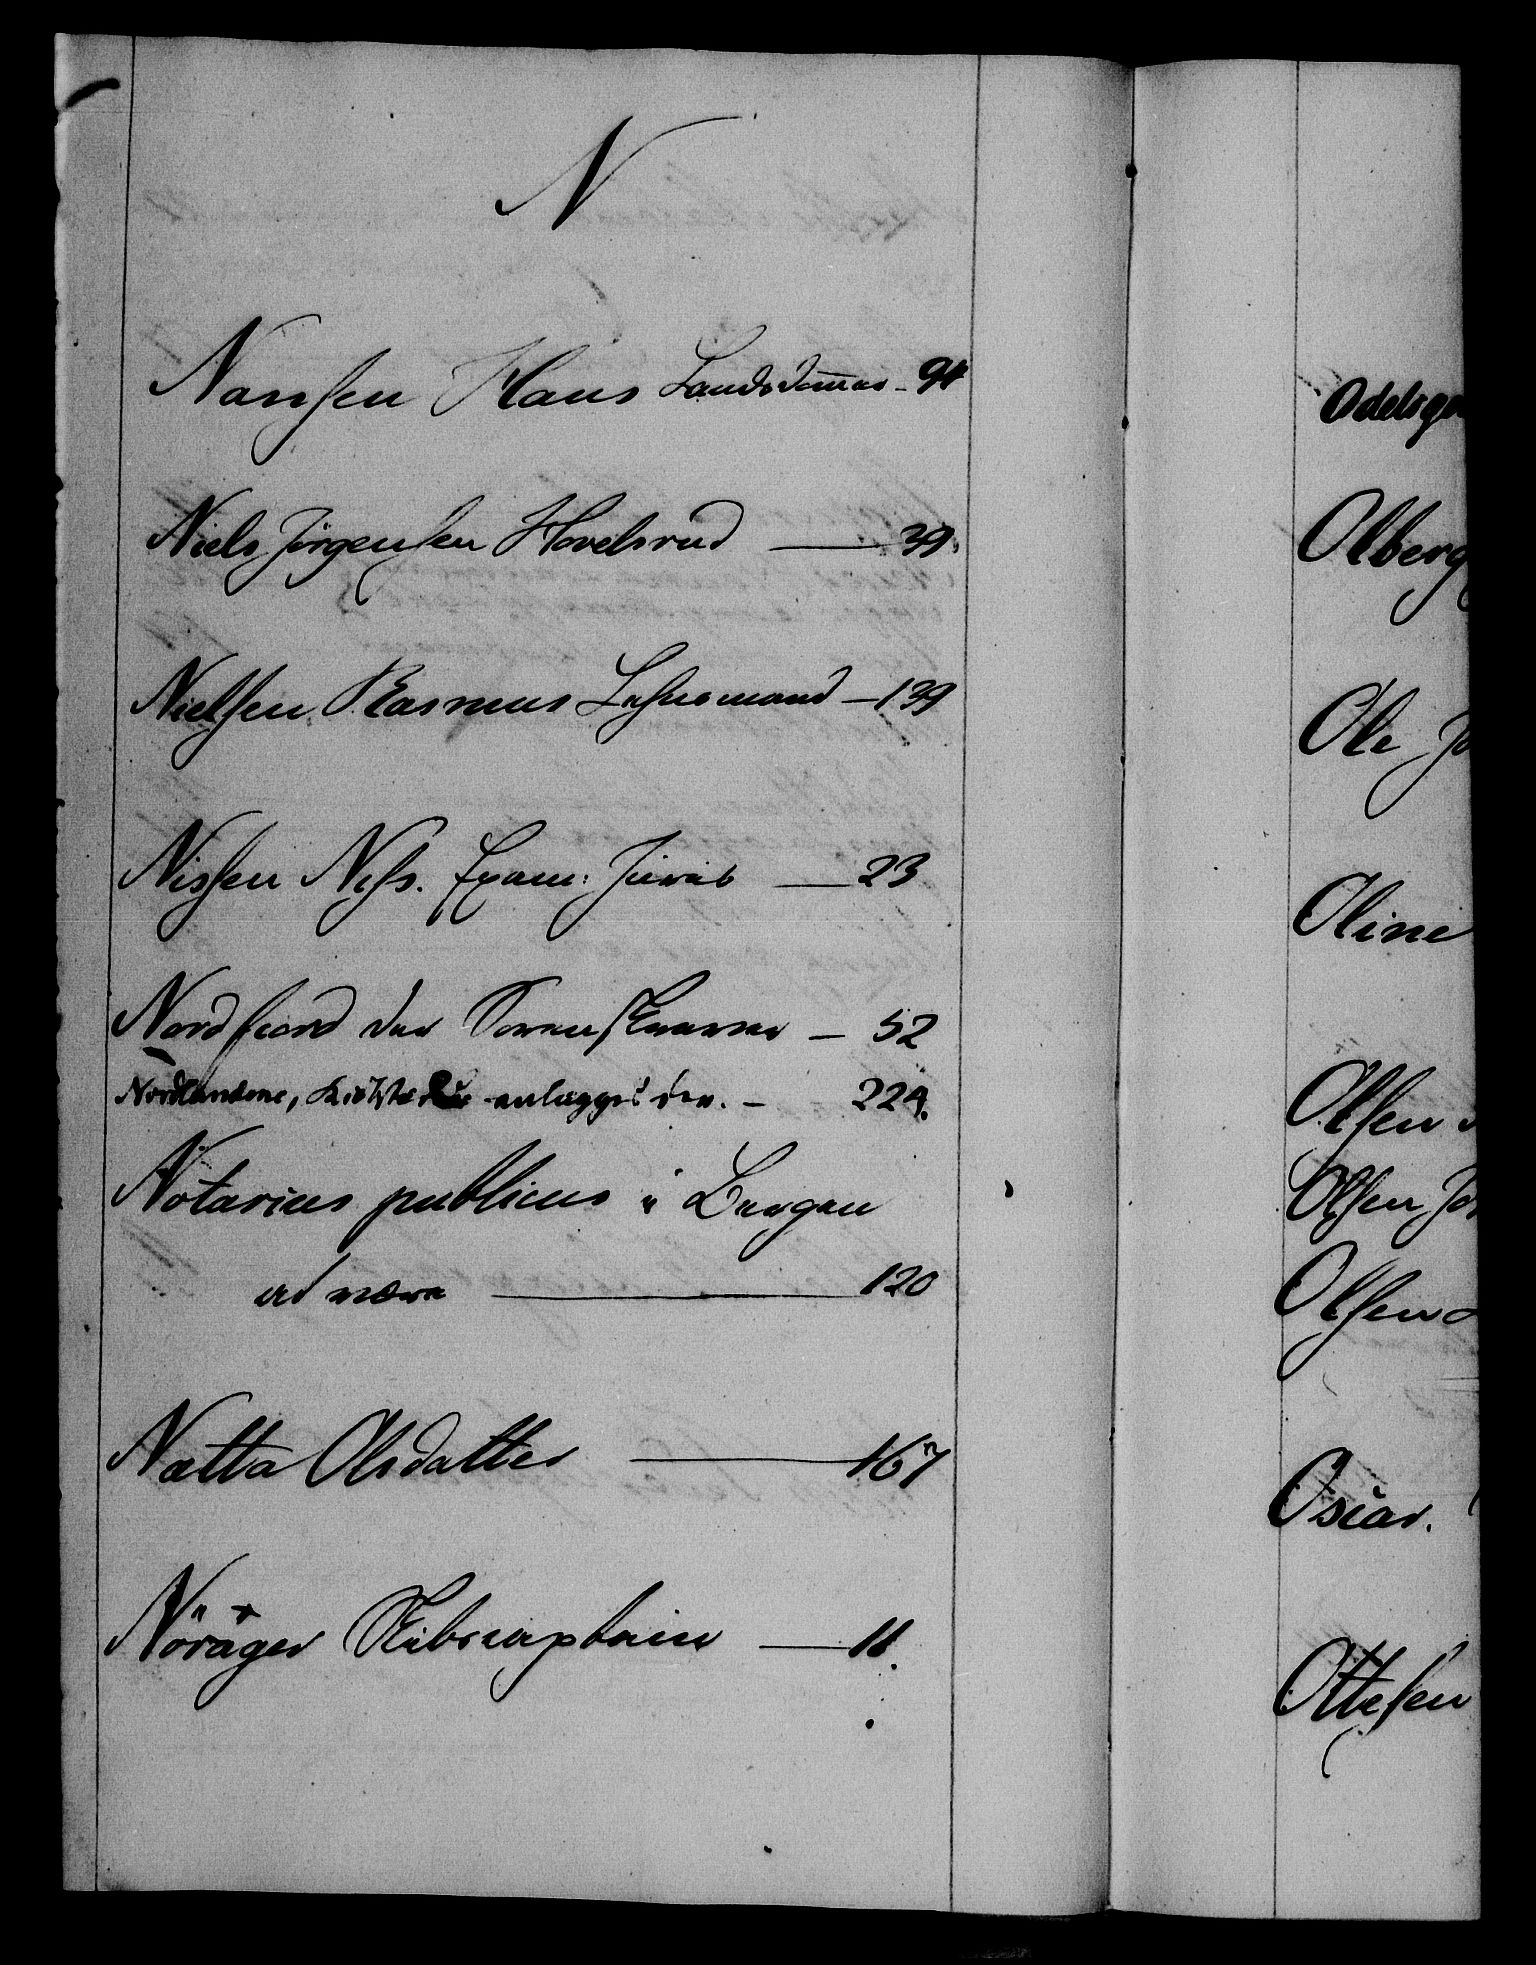 N
Nansen Hans Landsdommer - 94
Niels Jörgensen Hovelsrud — 39.
Nielsen Rasmus Lehnsmand — 139
Nissen Nis. Exam: Jurist — 23
Nordfiord der Sorenskriver — 52
Nordlandene, anlegges der. — 224.
Notarius publicus i Bergen
at være — 120
Nætta Olsdatter — 167
Nöräger Skibscaptain — 11.
Odelsge
Olberg
Ole Jo
Oline
Olsen
Olsen, Jo
Olsen
Oscar.
Ottesen